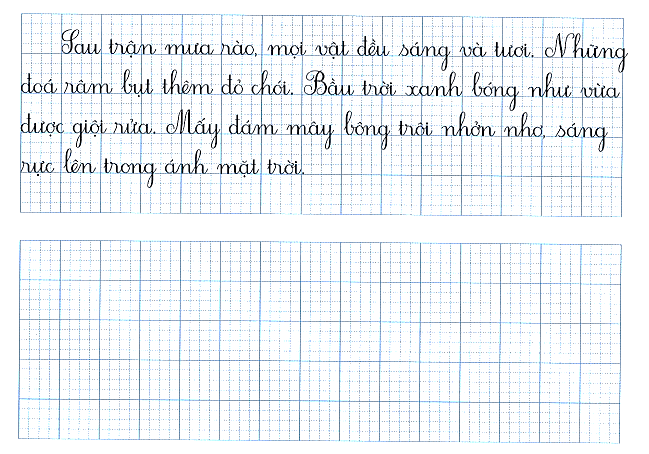 Sau trận mưa rào, mọi vật đều sáng và tươi. Những
đoá râm bụt thêm đỏ chói. Bầu trời xanh bóng như vừa
được giội rửa. Mấy đám mây bông trôi nhởn nhơ, sáng
rực lên trong ánh mặt trời.